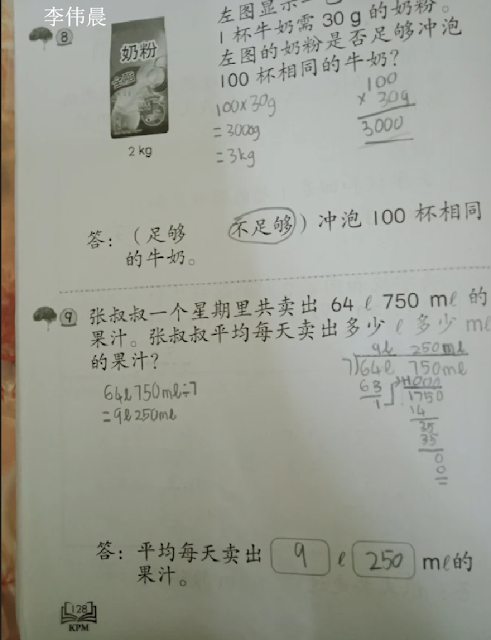 李伟晨
8
1 杯牛奶需 30 g 的奶粉。
左图的奶粉是否足够冲泡
100 杯相同的牛奶?
奶粉
2 kg
100x30g
=3000g
=3kg
100
x 30g
3000
答: (足够 不足够) 冲泡 100 杯相同
的牛奶。
9 张叔叔一个星期里共卖出 64 ℓ 750 mℓ 的
果汁。张叔叔平均每天卖出多少 ℓ 多少 mℓ
的果汁?
64ℓ750mℓ÷7
=9ℓ250mℓ
9ℓ 250mℓ
7)64ℓ 750mℓ
63
1
1750
14
35
35
0
0
答: 平均每天卖出 9 ℓ 250 mℓ的
果汁。
128
KPM